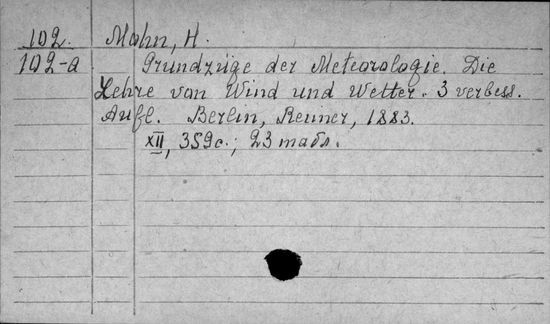 102. Mohn, H.
102-a Grundzüge der Meteorologie. Die
Lehre von Wind und Wetter. 3 verbess.
Aufl. Berlin, Reimer, 1883.
XII, 359с.; 23 табл.